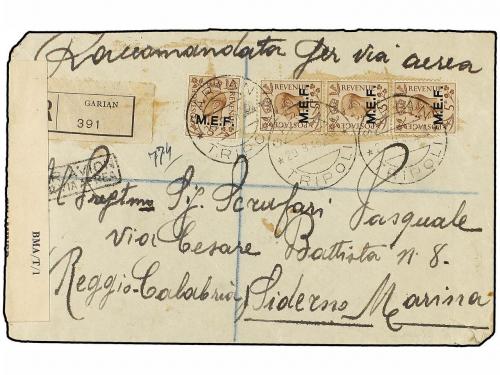 Raccomandata per via aerea
R
GARIAN
391
REVENUE
POSTAGE
M.E.F.
REVENUE
POSTAGE
M.E.F.
REVENUE
POSTAGE
M.E.F.
REVENUE
POSTAGE
M.E.F.
GARIAN
TRIPOLI
TRIPOLI
TRIPOLI
774
Scrufari Pasquale
Via Cesare Battista n. 8.
Reggio-Calabria) Siderno Marina
BMA/T/1